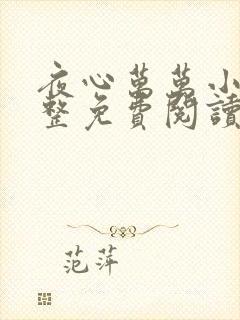 夜心萬萬小
整免費閱讀
范萍